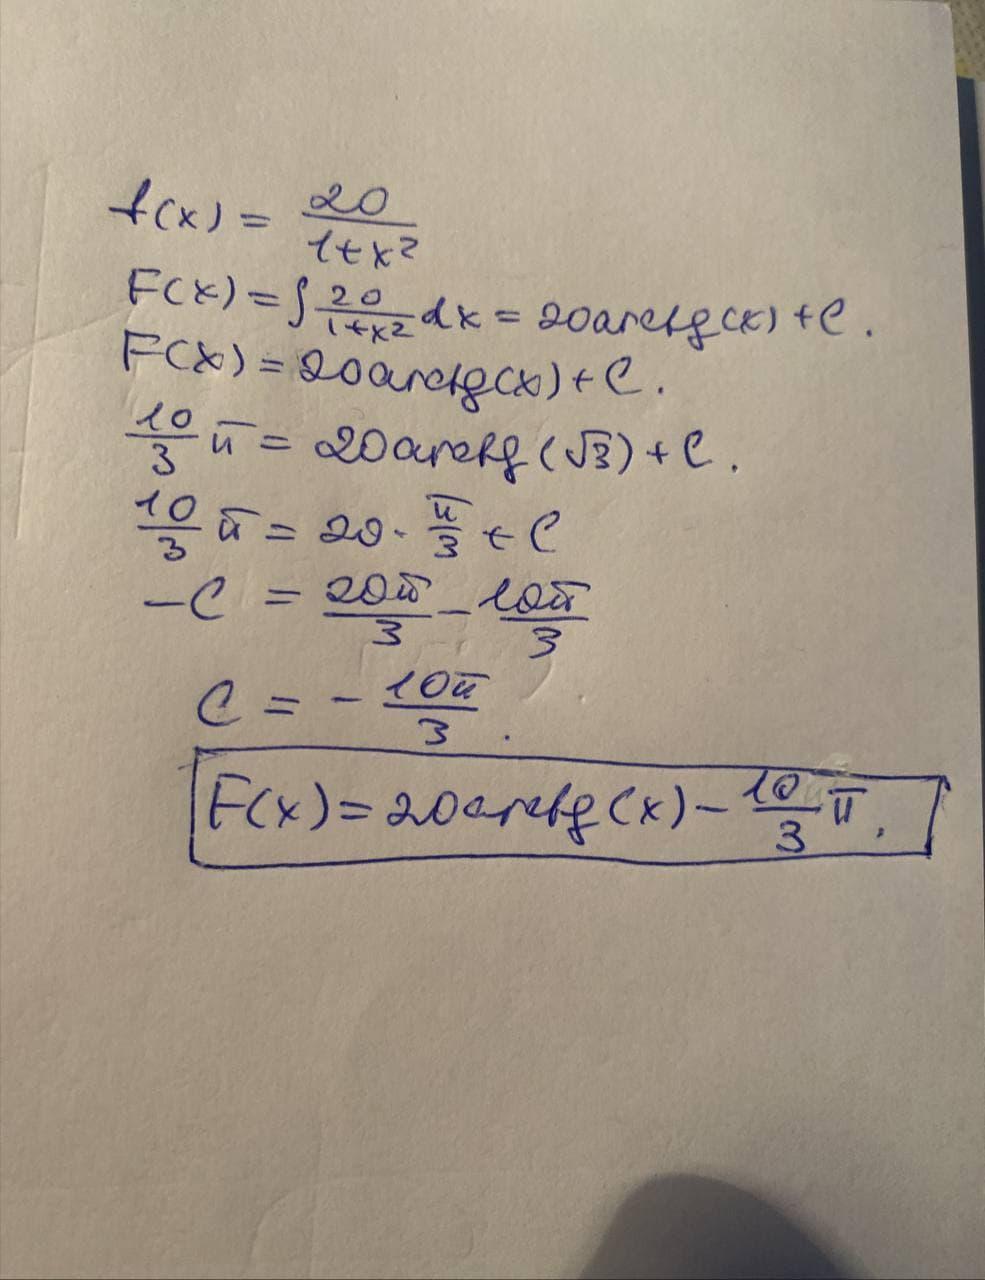 f(x) = 20/(1+x²)
F(x) = ∫ 20/(1+x²) dx = 20arctg(x) + C.
F(x) = 20arctg(x) + C.
10/3 π = 20arctg(√3) + C.
10/3 π = 20 · π/3 + C
-C = 20π/3 - 10π/3
C = - 10π/3.
F(x) = 20arctg(x) - 10/3 π.